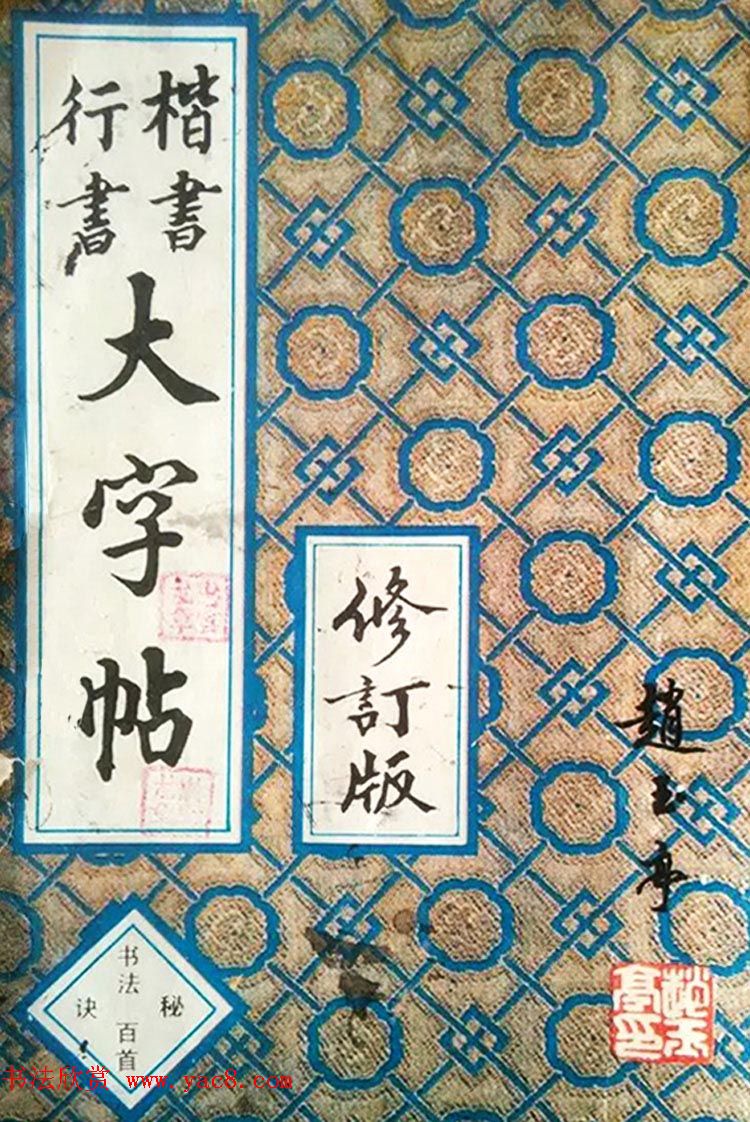 楷書
行書
大字帖
修訂版
趙玉亭
书法
百首
秘
诀
书法欣赏 www.yac8.com